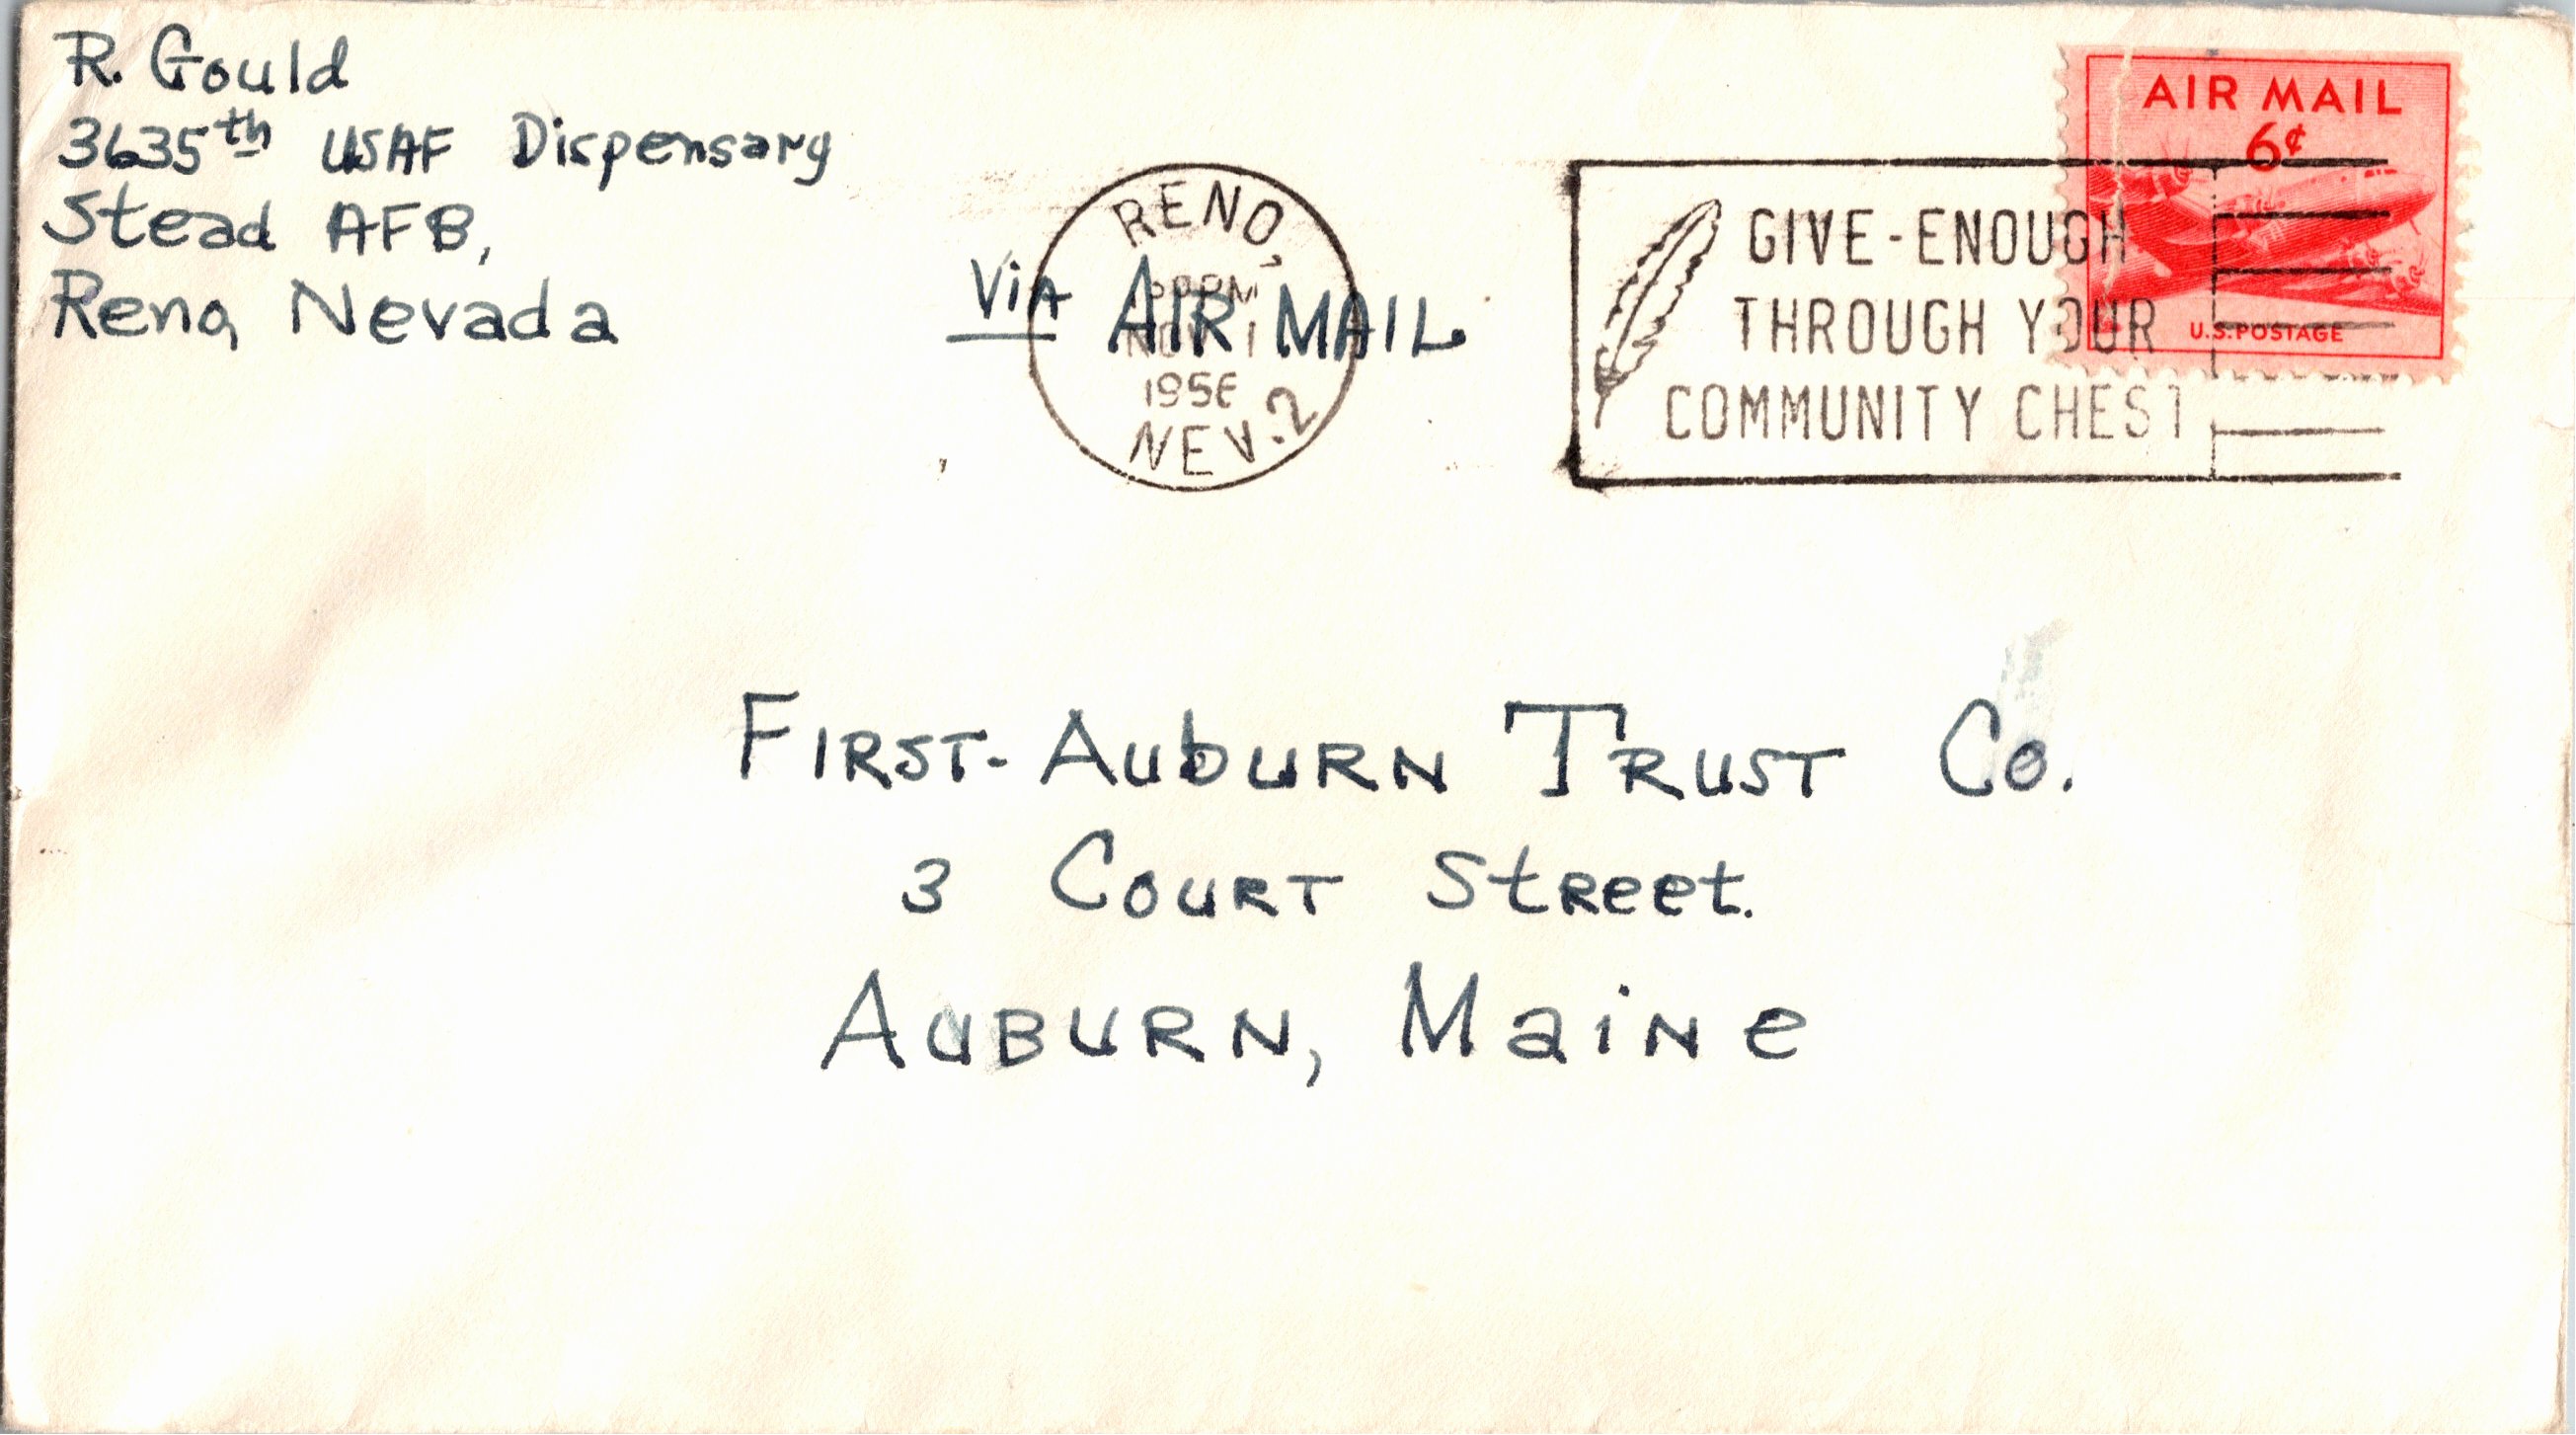 R. Gould
3635th USAF Dispensary
Stead AFB,
Reno, Nevada
Via AIR MAIL
RENO,
PM
NOV 1
1956
NEV. 2
GIVE-ENOUGH
THROUGH YOUR
COMMUNITY CHEST
AIR MAIL
6¢
U.S. POSTAGE
FIRST-AubURN TRUST Co.
3 COURT StReet.
AUBURN, MaiNe